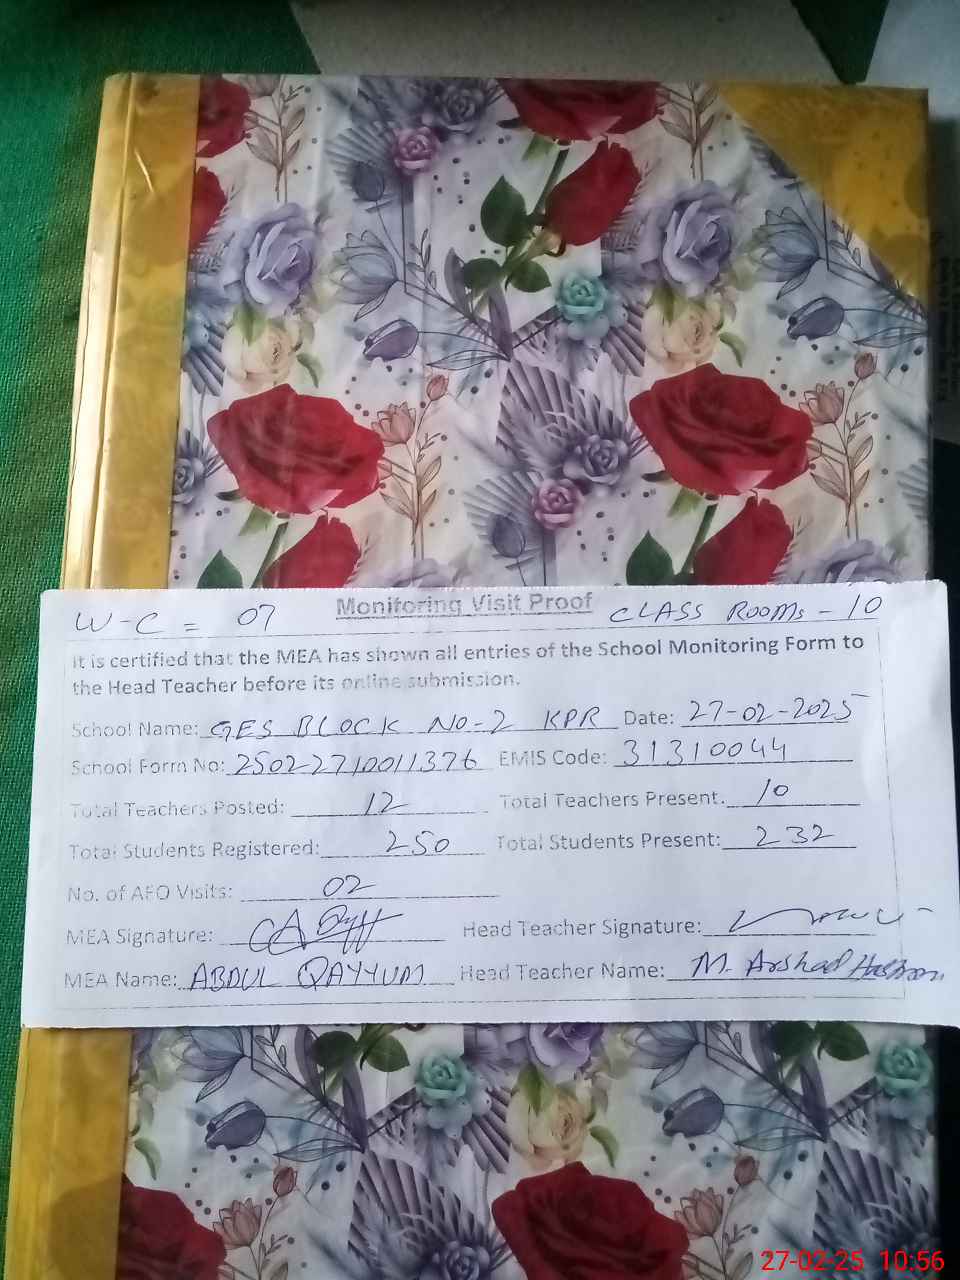 W-C = 07 Monitoring Visit Proof CLASS ROOMS - 10
It is certified that the MEA has shown all entries of the School Monitoring Form to
the Head Teacher before its online submission.
School Name: GES BLOCK NO-2 KPR Date: 27-02-2025
School Form No: 2502271001376 EMIS Code: 31310044
Total Teachers Posted: 12 Total Teachers Present. 10
Total Students Registered: 250 Total Students Present: 232
No. of AEO Visits: 02
MEA Signature: Head Teacher Signature:
MEA Name: ABDUL QAYYUM Head Teacher Name: M. Arshad
27-02-25 10:56